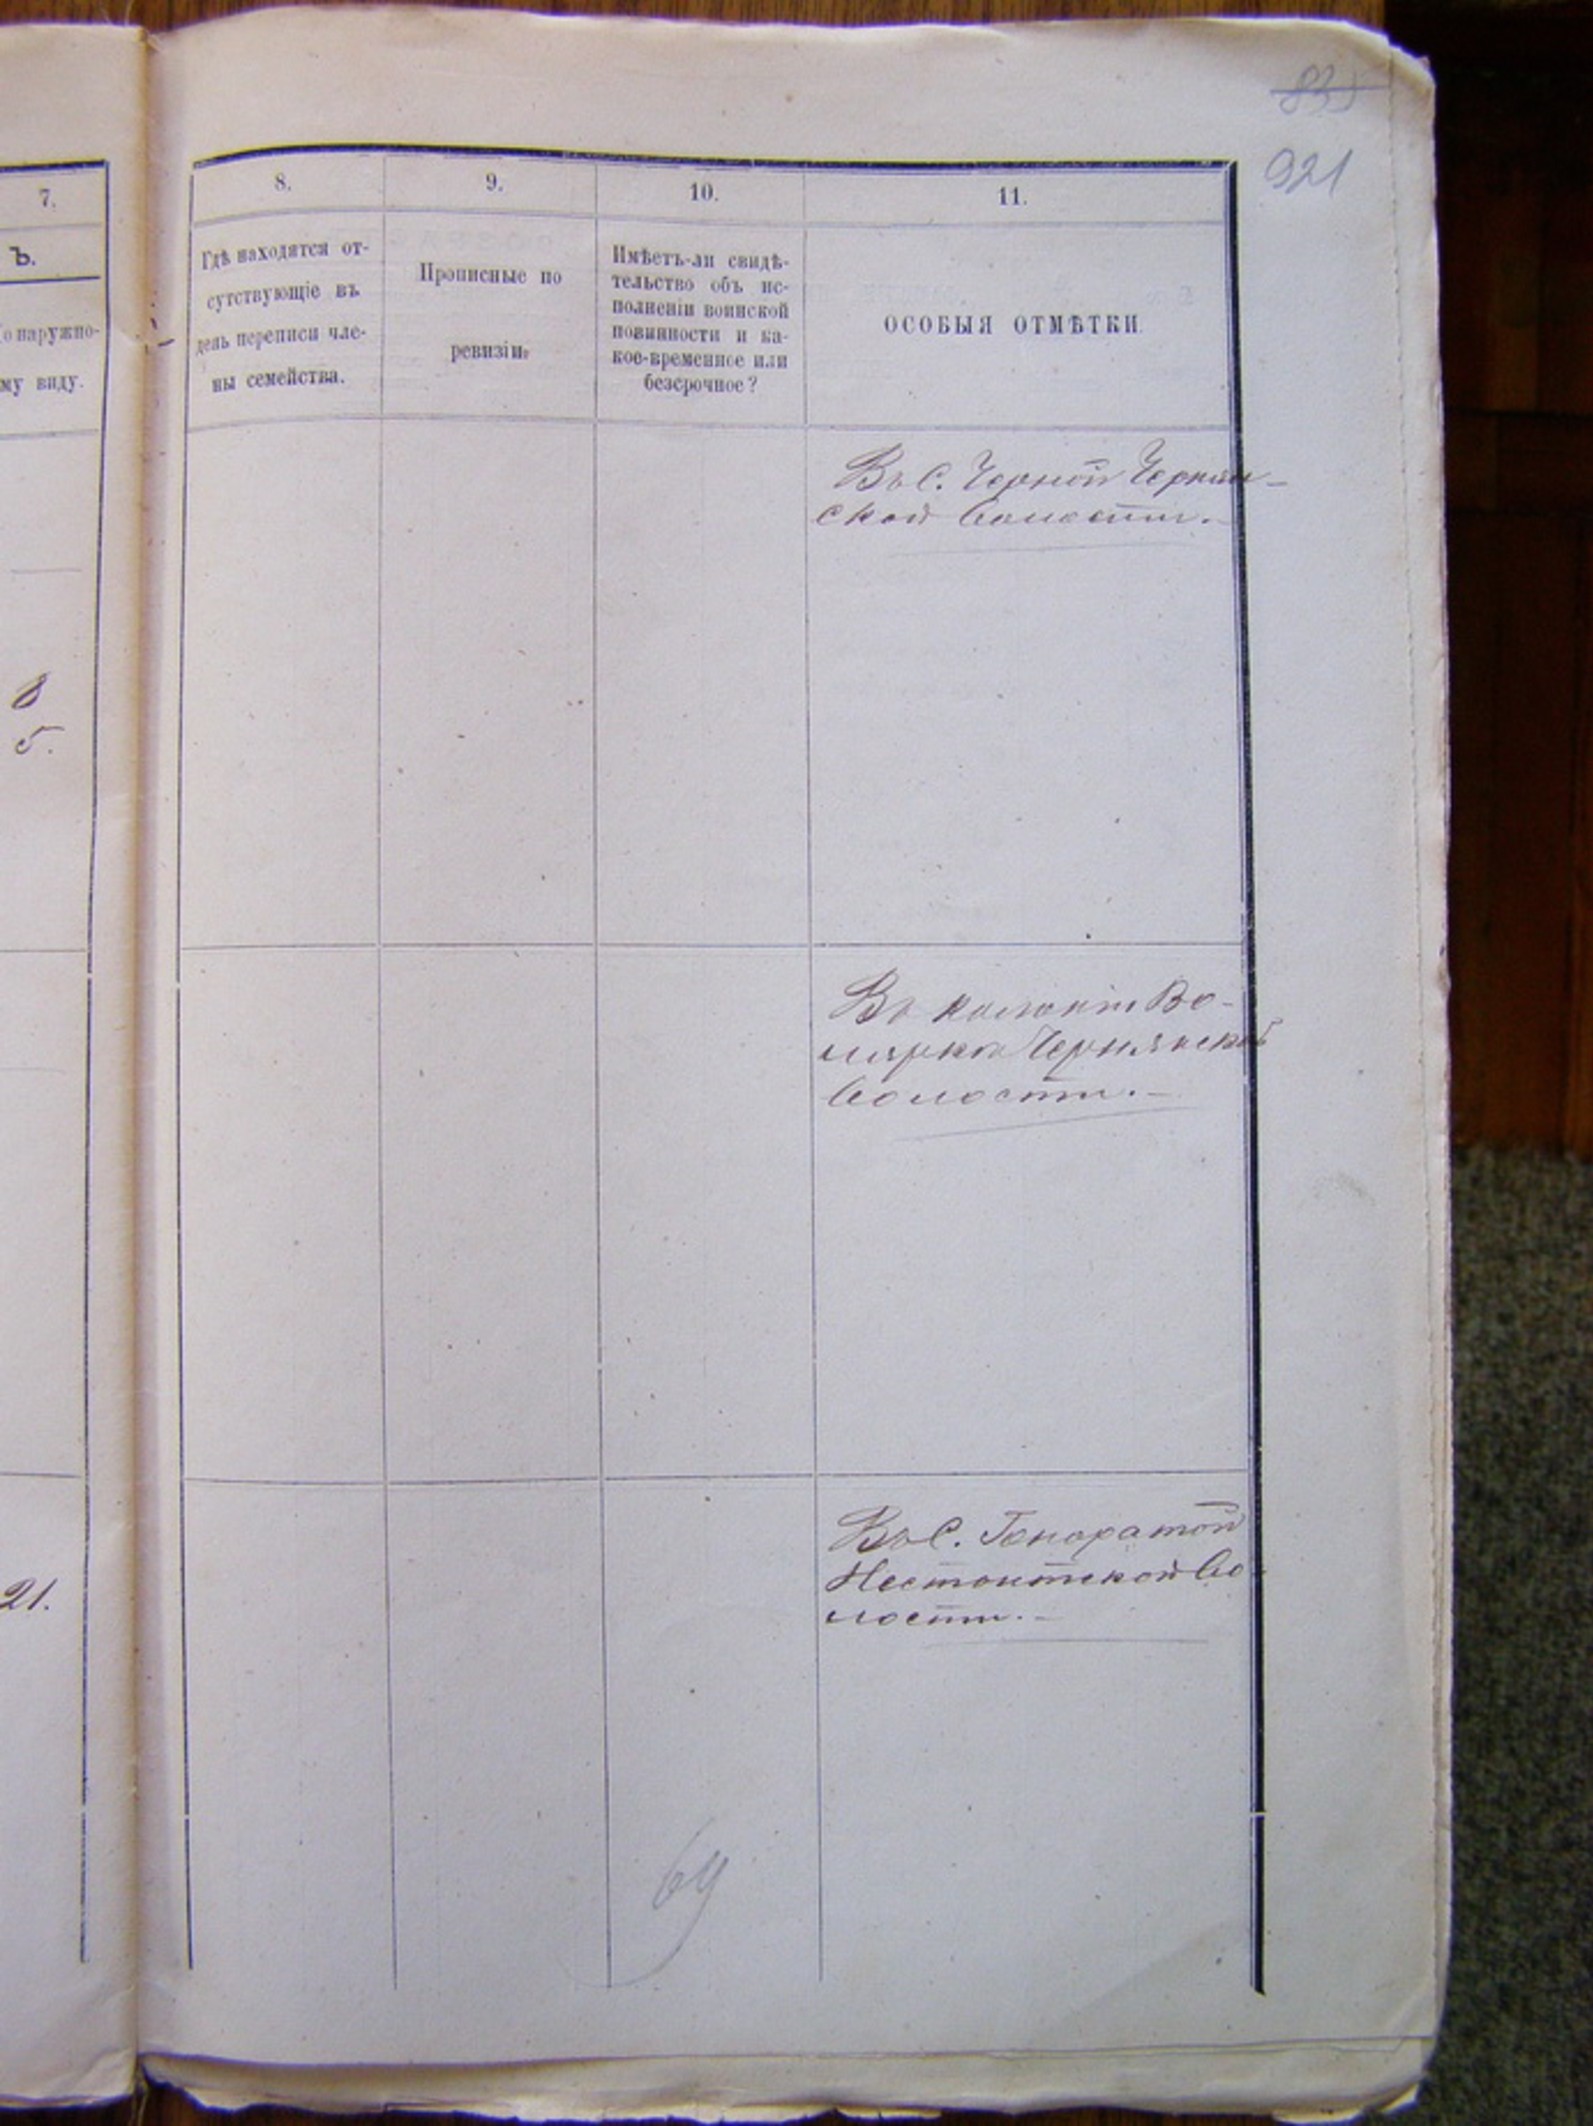 835
921
7.
Ъ.
о наружно-
му виду.
8
5.
21.
8.
9.
10.
11.
Гдѣ находятся от-
сутствующіе въ
день переписи чле-
ны семейства.
Прописные по
ревизіи.
Имѣетъ-ли свидѣ-
тельство объ ис-
полненіи воинской
повинности и ка-
кое-временное или
безсрочное?
ОСОБЫЯ ОТМѢТКИ.
Въ С. Черной Чернян-
ской Волости.
Въ колоніи Во-
лярка Чернянской
Волости.
Въ С. Гоноратой
Нестоитской Во
лости.
69